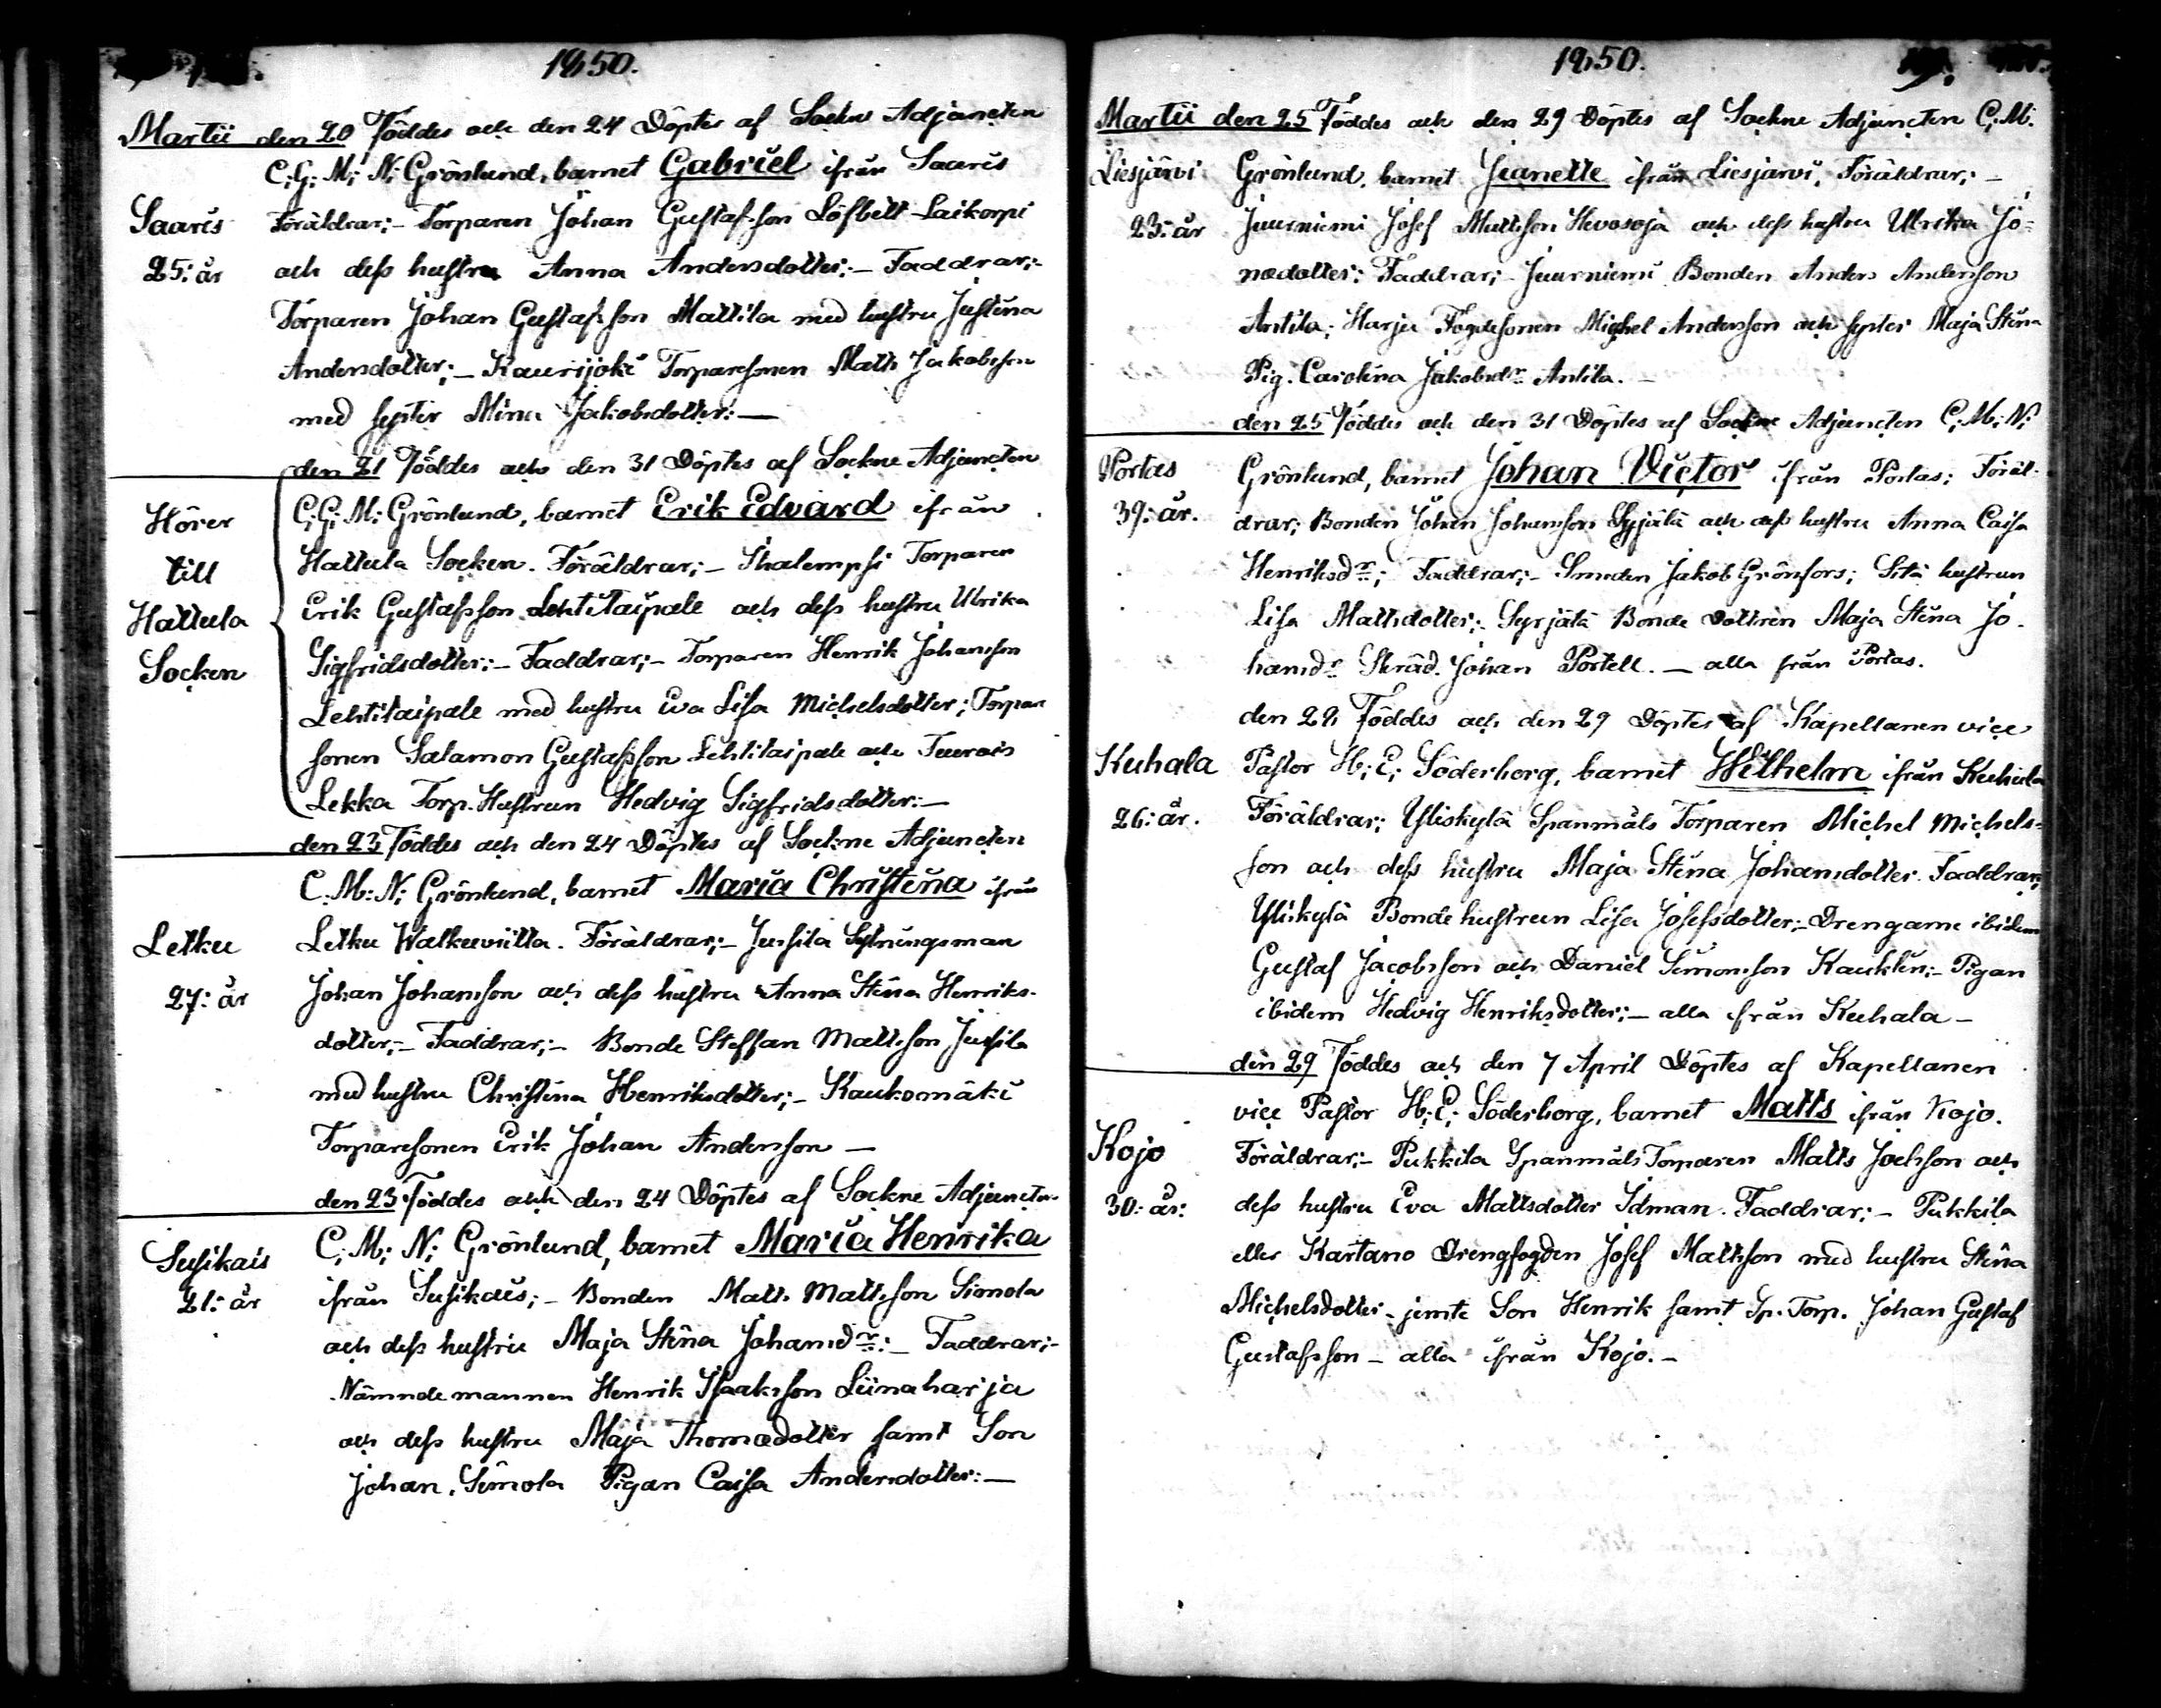 1850.
Martii den 20 Föddes och den 24 Döptes af Sockne Adjuncten
C; G; M; N; Grönlund, barnet Gabriel ifrån Saaris
Saaris Föräldrar;- Torparen Johan Gustafsson Löfbelt Laikorpi
25: år och dess hustru Anna Andersdotter:- Faddrar;-
Torparen Johan Gustafsson Mattila med hustru Justina
Andersdotter;- Kaurijoki Torparesonen Matts Jakobsson
med syster Mina Jakobsdotter:-
den 21 Föddes och den 31 Döptes af Sockne Adjuncten
Hörer C; G; M; Grönlund, barnet Erik Edvard ifrån
till Hattula Socken. Föräldrar;- Ihalempsi Torparen
Hattula Erik Gustafsson Lehtitaipale och dess hustru Ulrika
Socken Sigfridsdotter:- Faddrar;- Torparen Henrik Johansson
Lehtitaipale med hustru Eva Lisa Michelsdotter; Torpare
sonen Salamon Gustafsson Lehtitaipale och
Lekka Torp. Hustrun Hedvig Sigfridsdotter:-
den 23 Föddes och den 24 Döptes af Sockne Adjuncten
C. M: N; Grönlund, barnet Maria Christina ifrån
Letku Letku Walkeviitta. Föräldrar;- Jussila Sytningsman
27: år Johan Johansson och dess hustru Anna Stina Henriks-
dotter;- Faddrar;- Bonde Steffan Mattsson Jussila
med hustru Christina Henriksdotter;- Kaukomäki
Torparesonen Erik Johan Andersson -
den 23 Föddes och den 24 Döptes af Sockne Adjuncten
C; M; N; Grönlund, barnet Maria Henrika
Susikais
21: år ifrån Susikais;- Bonden Matts Mattsson Simola
och dess hustru Maja Stina Johansdr:- Faddrar;-
Nämndemannen Henrik Isaaksson Liinaharja
och dess hustru Maja Thomædotter samt Son
Johan. Simola Pigan Caisa Andersdotter:-
1850.
Martii den 25 Föddes och den 29 Döptes af Sockne Adjuncten C; M.
Liesjärvi Grönlund, barnet Jeanette ifrån Liesjärvi, Föräldrar;-
23: år Juurniemi Josef Mattsson Hevosoja och dess hustru Ulrika Jo-
nædotter: Faddrar;- Juurniemi Bonden Anders Andersson
Antila; Harju Fogdesonen Michel Andersson och syster Maja Stina
Pig. Carolina Jakobsdr Antila. -
den 25 Föddes och den 31 Döptes af Sockne Adjuncten C; M; N;
Portas Grönlund, barnet Johan Victor ifrån Portas; Föräl-
39: år. drar; Bonden Johan Johansson Syrjälä och dess hustru Anna Caisa
Henriksdr; Faddrar;- Smeden Jakob Grönfors; hustrun
Lisa Mattsdotter; Syrjälä Bonde Dottren Maja Stina Jo-
hansdr Skräd. Johan Portell. - alla från Portas.
den 29 Föddes och den 29 Döptes af Kapellanen vice
Kuhala Pastor H; E; Söderborg, barnet Wilhelm ifrån Kuhala
26: år. Föräldrar; Yliskylä Spanmåls Torparen Michel Michels-
son och dess hustru Maja Stina Johansdotter. Faddrar;
Yliskylä Bonde hustrun Lisa Josefsdotter;- Drengarne ibidem
Gustaf Jacobsson och Daniel Simonsson Kauklin;- Pigan
ibidem Hedvig Henriksdotter;- alla ifrån Kuhala -
den 29 Föddes och den 7 April Döptes af Kapellanen
vice Pastor H; E; Söderborg, barnet Matts ifrån Kojo.
Kojo Föräldrar;- Pukkila Spanmåls Torparen Matts Jochsson och
30: år: dess hustru Eva Mattsdotter Idman. Faddrar;- Pukkila
eller Kartano Drengfogden Josef Mattsson med hustru Stina
Michelsdotter - jemte Son Henrik samt Sp. Torp. Johan Gustaf
Gustafsson - alla ifrån Kojo. -